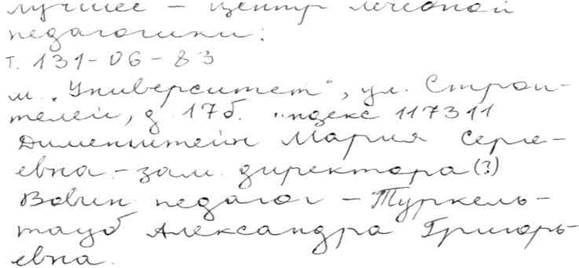 лучшее – Центр лечебной
педагогики:
т. 131-06-83
м. „Университет", ул. Строи-
телей, д 17б. индекс 117311
Дименштейн Мария Серге-
евна – зам. директора (?)
Вовин педагог – Туркель-
тауб Александра Григорь-
евна.